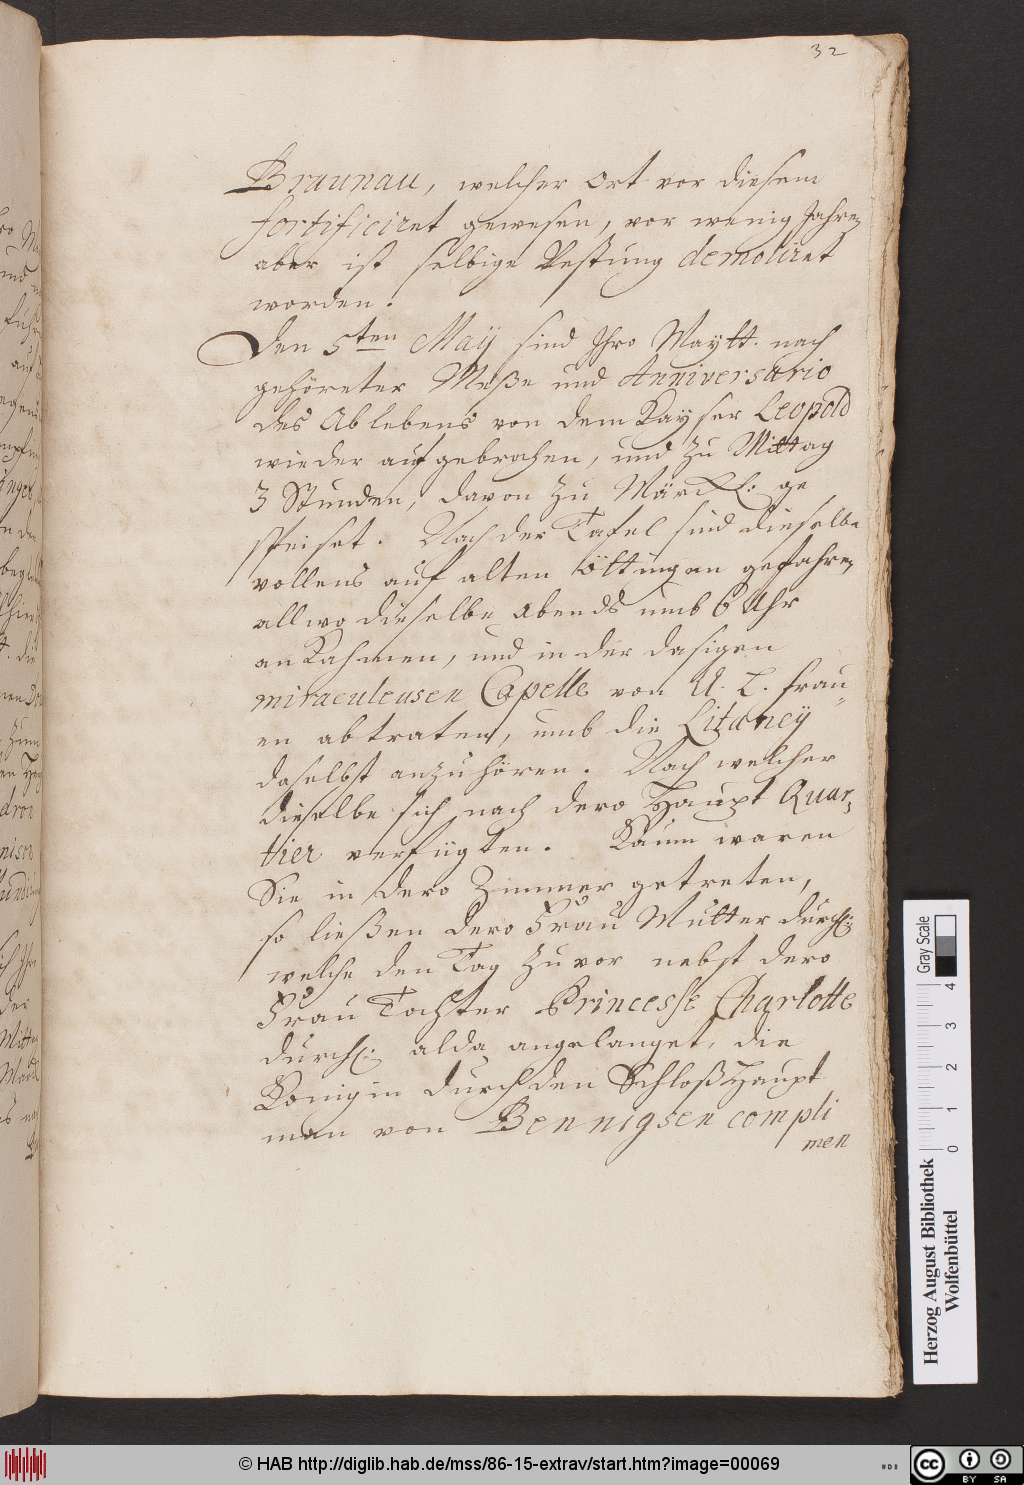 32
Braunau, welcher ort vor diesem
fortificiret gewesen, vor wenig Jahren
aber ist selbige Vestung demoliret
worden.
Den 5ten May sind Ihro Maytt. nach
gehöreter Meße und Anniversario
des Ablebens von dem Kayser Leopold
wieder aufgebrochen, und zu Mittag
3 Stunden, davon zu Märckl: ge
speiset. Nach der Tafel sind dieselbe
vollens auf alten Öttingen gefahren
allwo dieselbe abends umb 6 Uhr
ankahmen, und in der dasigen
miraculeusen Capelle von U. L. frau„
en abtraten, umb die Litaney
daselbst anzuhören. Nach welcher
dieselbe sich nach dero Haupt Quar„
tier verfügten. Kaum waren
Sie in dero Zimmer getreten,
so ließen dero Frau Mutter durchl:
welche den Tag zuvor nebst dero
Frau Tochter Princesse Charlotte
durchl: alda angelanget, die
Königin durch den Schloßhaupt
man von Bennigsen compli
men
Gray Scale
0 1 2 3 4
Herzog August Bibliothek
Wolfenbüttel
© HAB http://diglib.hab.de/mss/86-15-extrav/start.htm?image=00069
CC BY SA